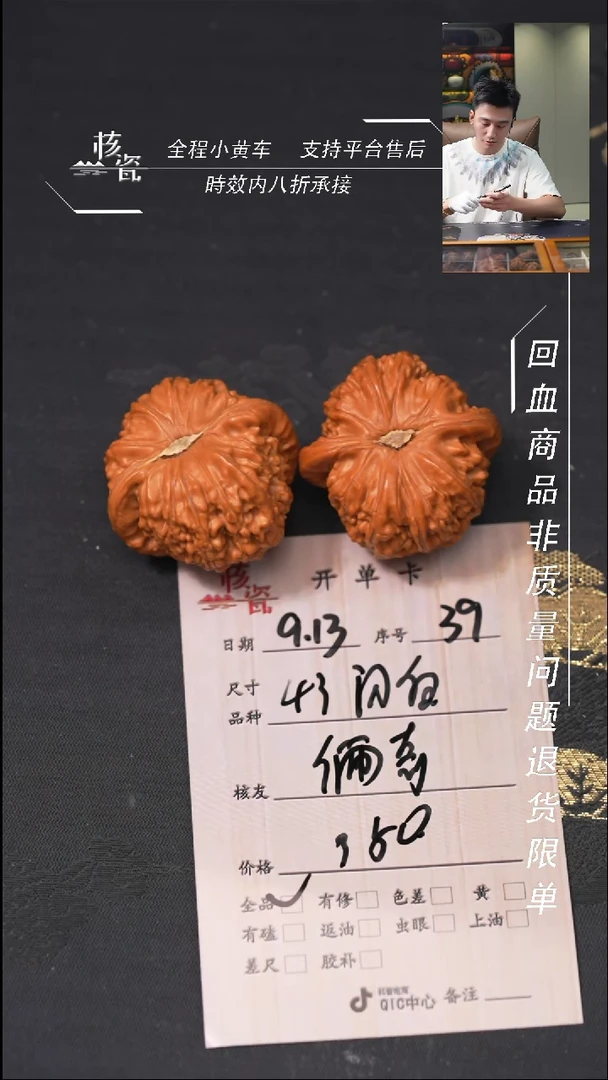 核瓷
全程小黄车 支持平台售后
時效内八折承接
回血商品非质量问题退货限单
核瓷
开单卡
日期 9.13 序号 39
尺寸
品种 43
核友 俩
价格 360
全品 有修 色差 黄
有磕 返油 虫眼 上油
差尺 胶补
抖音电商
QIC中心 备注